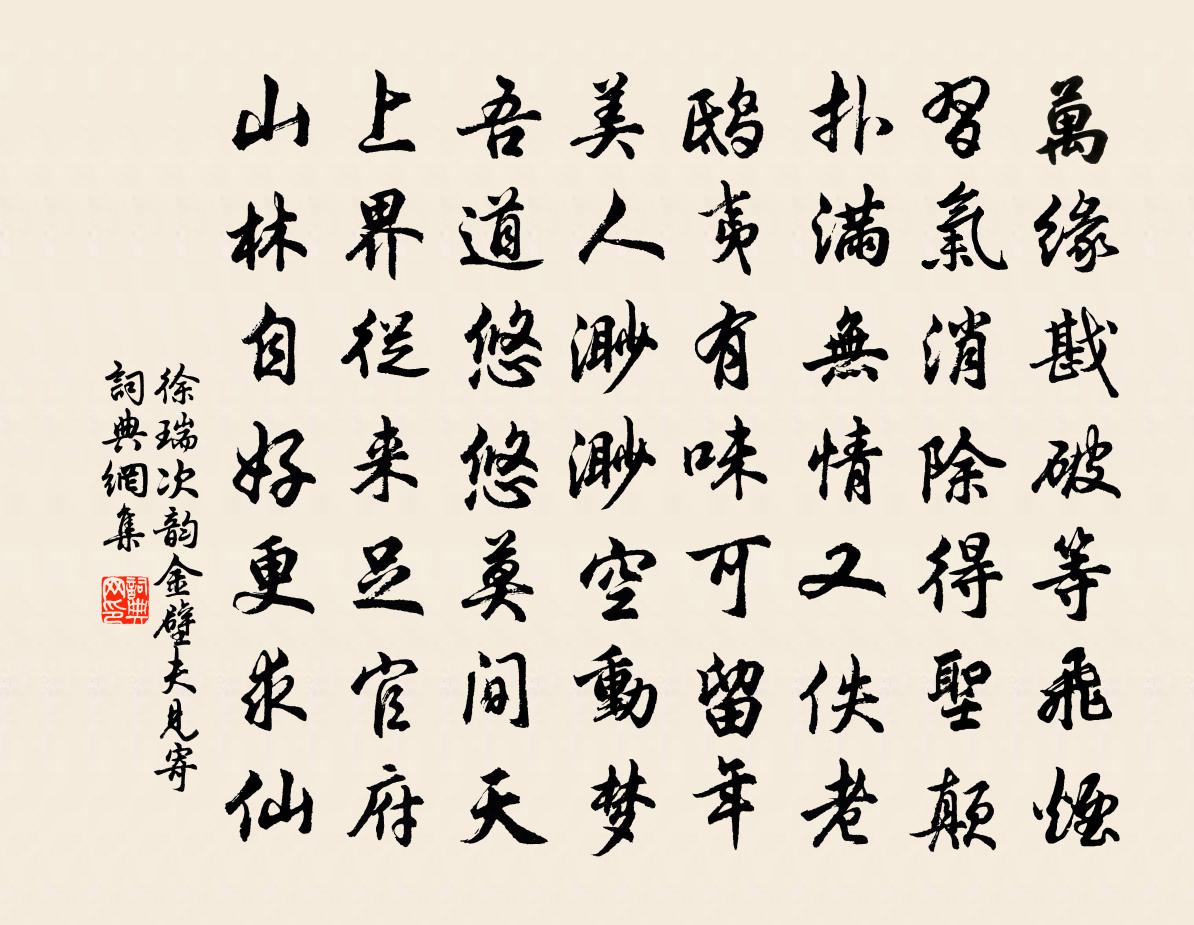 萬緣戡破等飛煙
習氣消除得聖顛
扑滿無情又佚老
鴟夷有味可留年
美人渺渺空動梦
吾道悠悠莫间天
上界從来足官府
山林自好更求仙
徐瑞次韵金壁夫見寄
詞典網集
詞典网印